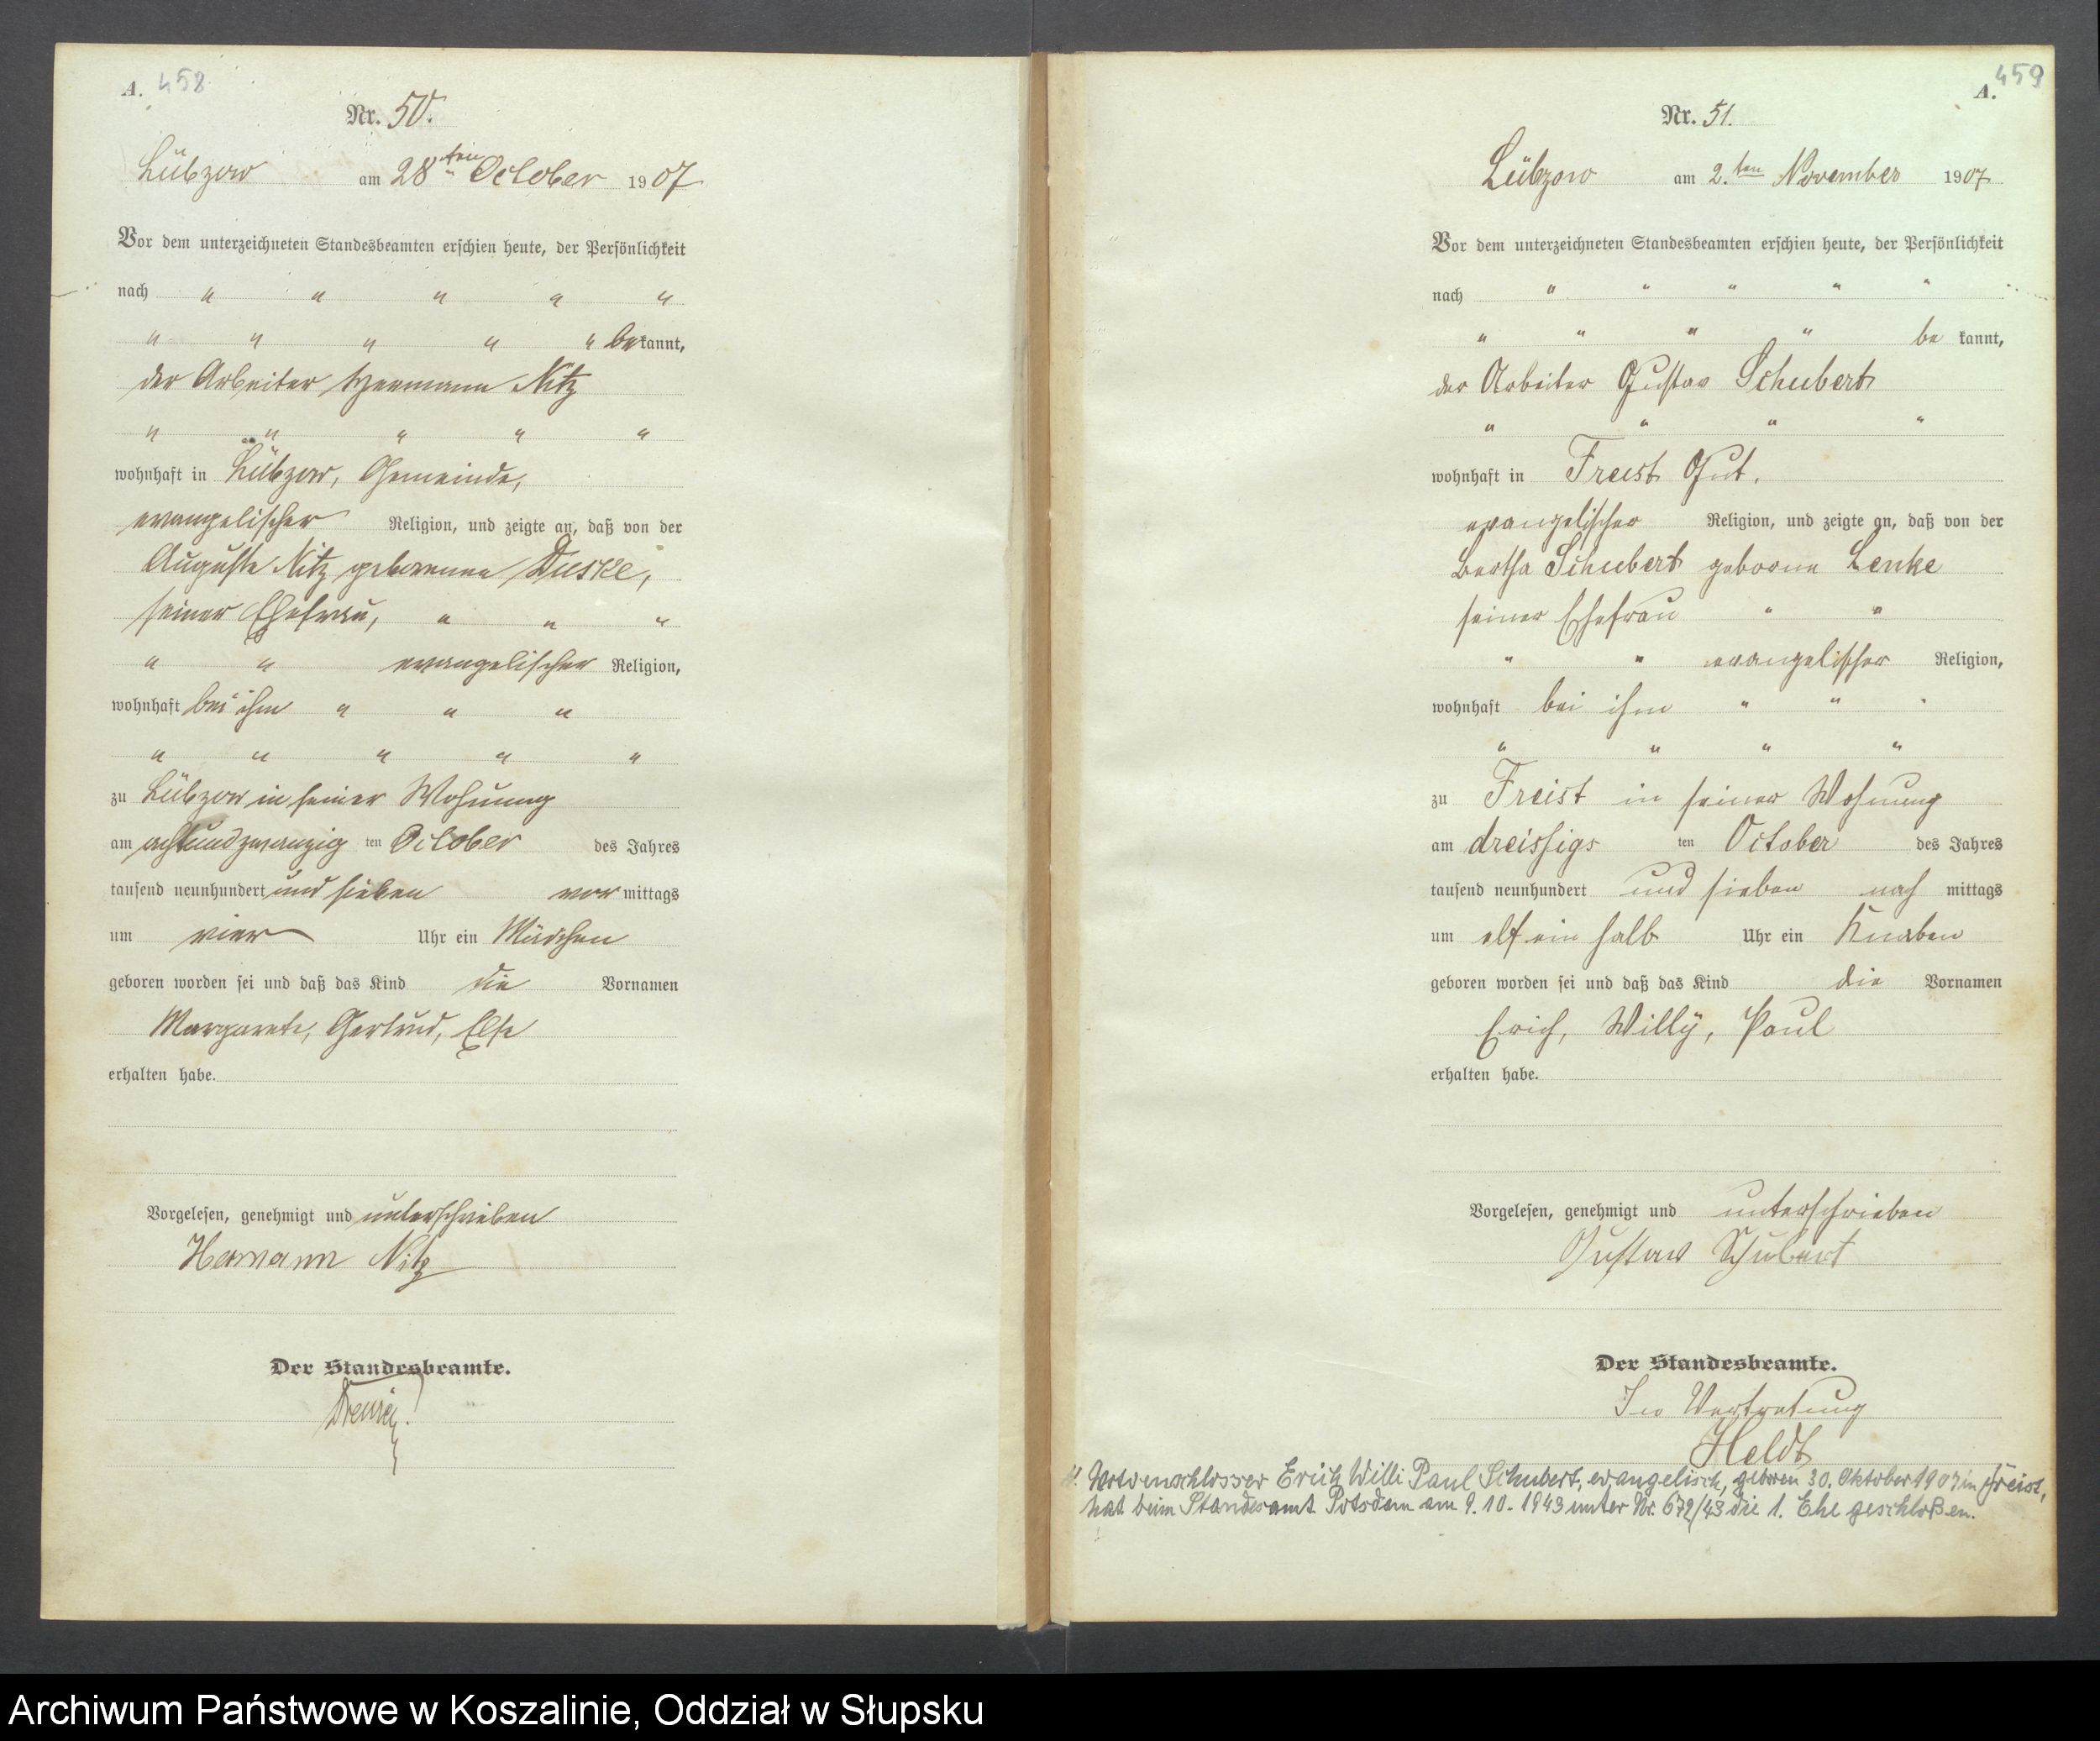 A. 458
Nr. 50.
Lübzow am 28ten October 1907
Vor dem unterzeichneten Standesbeamten erschien heute, der Persönlichkeit
nach " " " " "
" " " " " bekannt,
der Arbeiter Hermann Nitz
" " " " "
wohnhaft in Lübzow, Gemeinde,
evangelischer Religion, und zeigte an, daß von der
Auguste Nitz geborenen Duske,
seiner Ehefrau, " " "
" " evangelischer Religion,
wohnhaft bei ihm " " "
" " " " "
zu Lübzow in seiner Wohnung
am achtundzwanzig ten October des Jahres
tausend neunhundert und sieben vor mittags
um vier Uhr ein Mädchen
geboren worden sei und daß das Kind die Vornamen
Margarete, Gertrud, Else
erhalten habe.
Vorgelesen, genehmigt und unterschrieben
Hermann Nitz
Der Standesbeamte.
459
A.
Nr. 51.
Lübzow am 2.ten November 1907
Vor dem unterzeichneten Standesbeamten erschien heute, der Persönlichkeit
nach " " " " "
" " " " be kannt,
der Arbeiter Gustav Schubert
" " " "
wohnhaft in Freist Gut.
evangelischer Religion, und zeigte an, daß von der
Bertha Schubert geborne Lenke
seiner Ehefrau " "
" " evangelischer Religion,
wohnhaft bei ihm " " "
" " " "
zu Freist in seiner Wohnung
am dreissigs ten October des Jahres
tausend neunhundert und sieben nach mittags
um elf ein halb Uhr ein Knaben
geboren worden sei und daß das Kind die Vornamen
Erich, Willy, Paul
erhalten habe.
Vorgelesen, genehmigt und unterschrieben
Gustav Schubert
Der Standesbeamte.
In Vertretung
Heldt
Motorenschlosser Erich Willi Paul Schubert, evangelisch, geboren 30. Oktober 1907 in Freist,
hat beim Standesamt Potsdam am 9.10.1943 unter Nr. 672/43 die 1. Ehe geschloßen.
Archiwum Państwowe w Koszalinie, Oddział w Słupsku